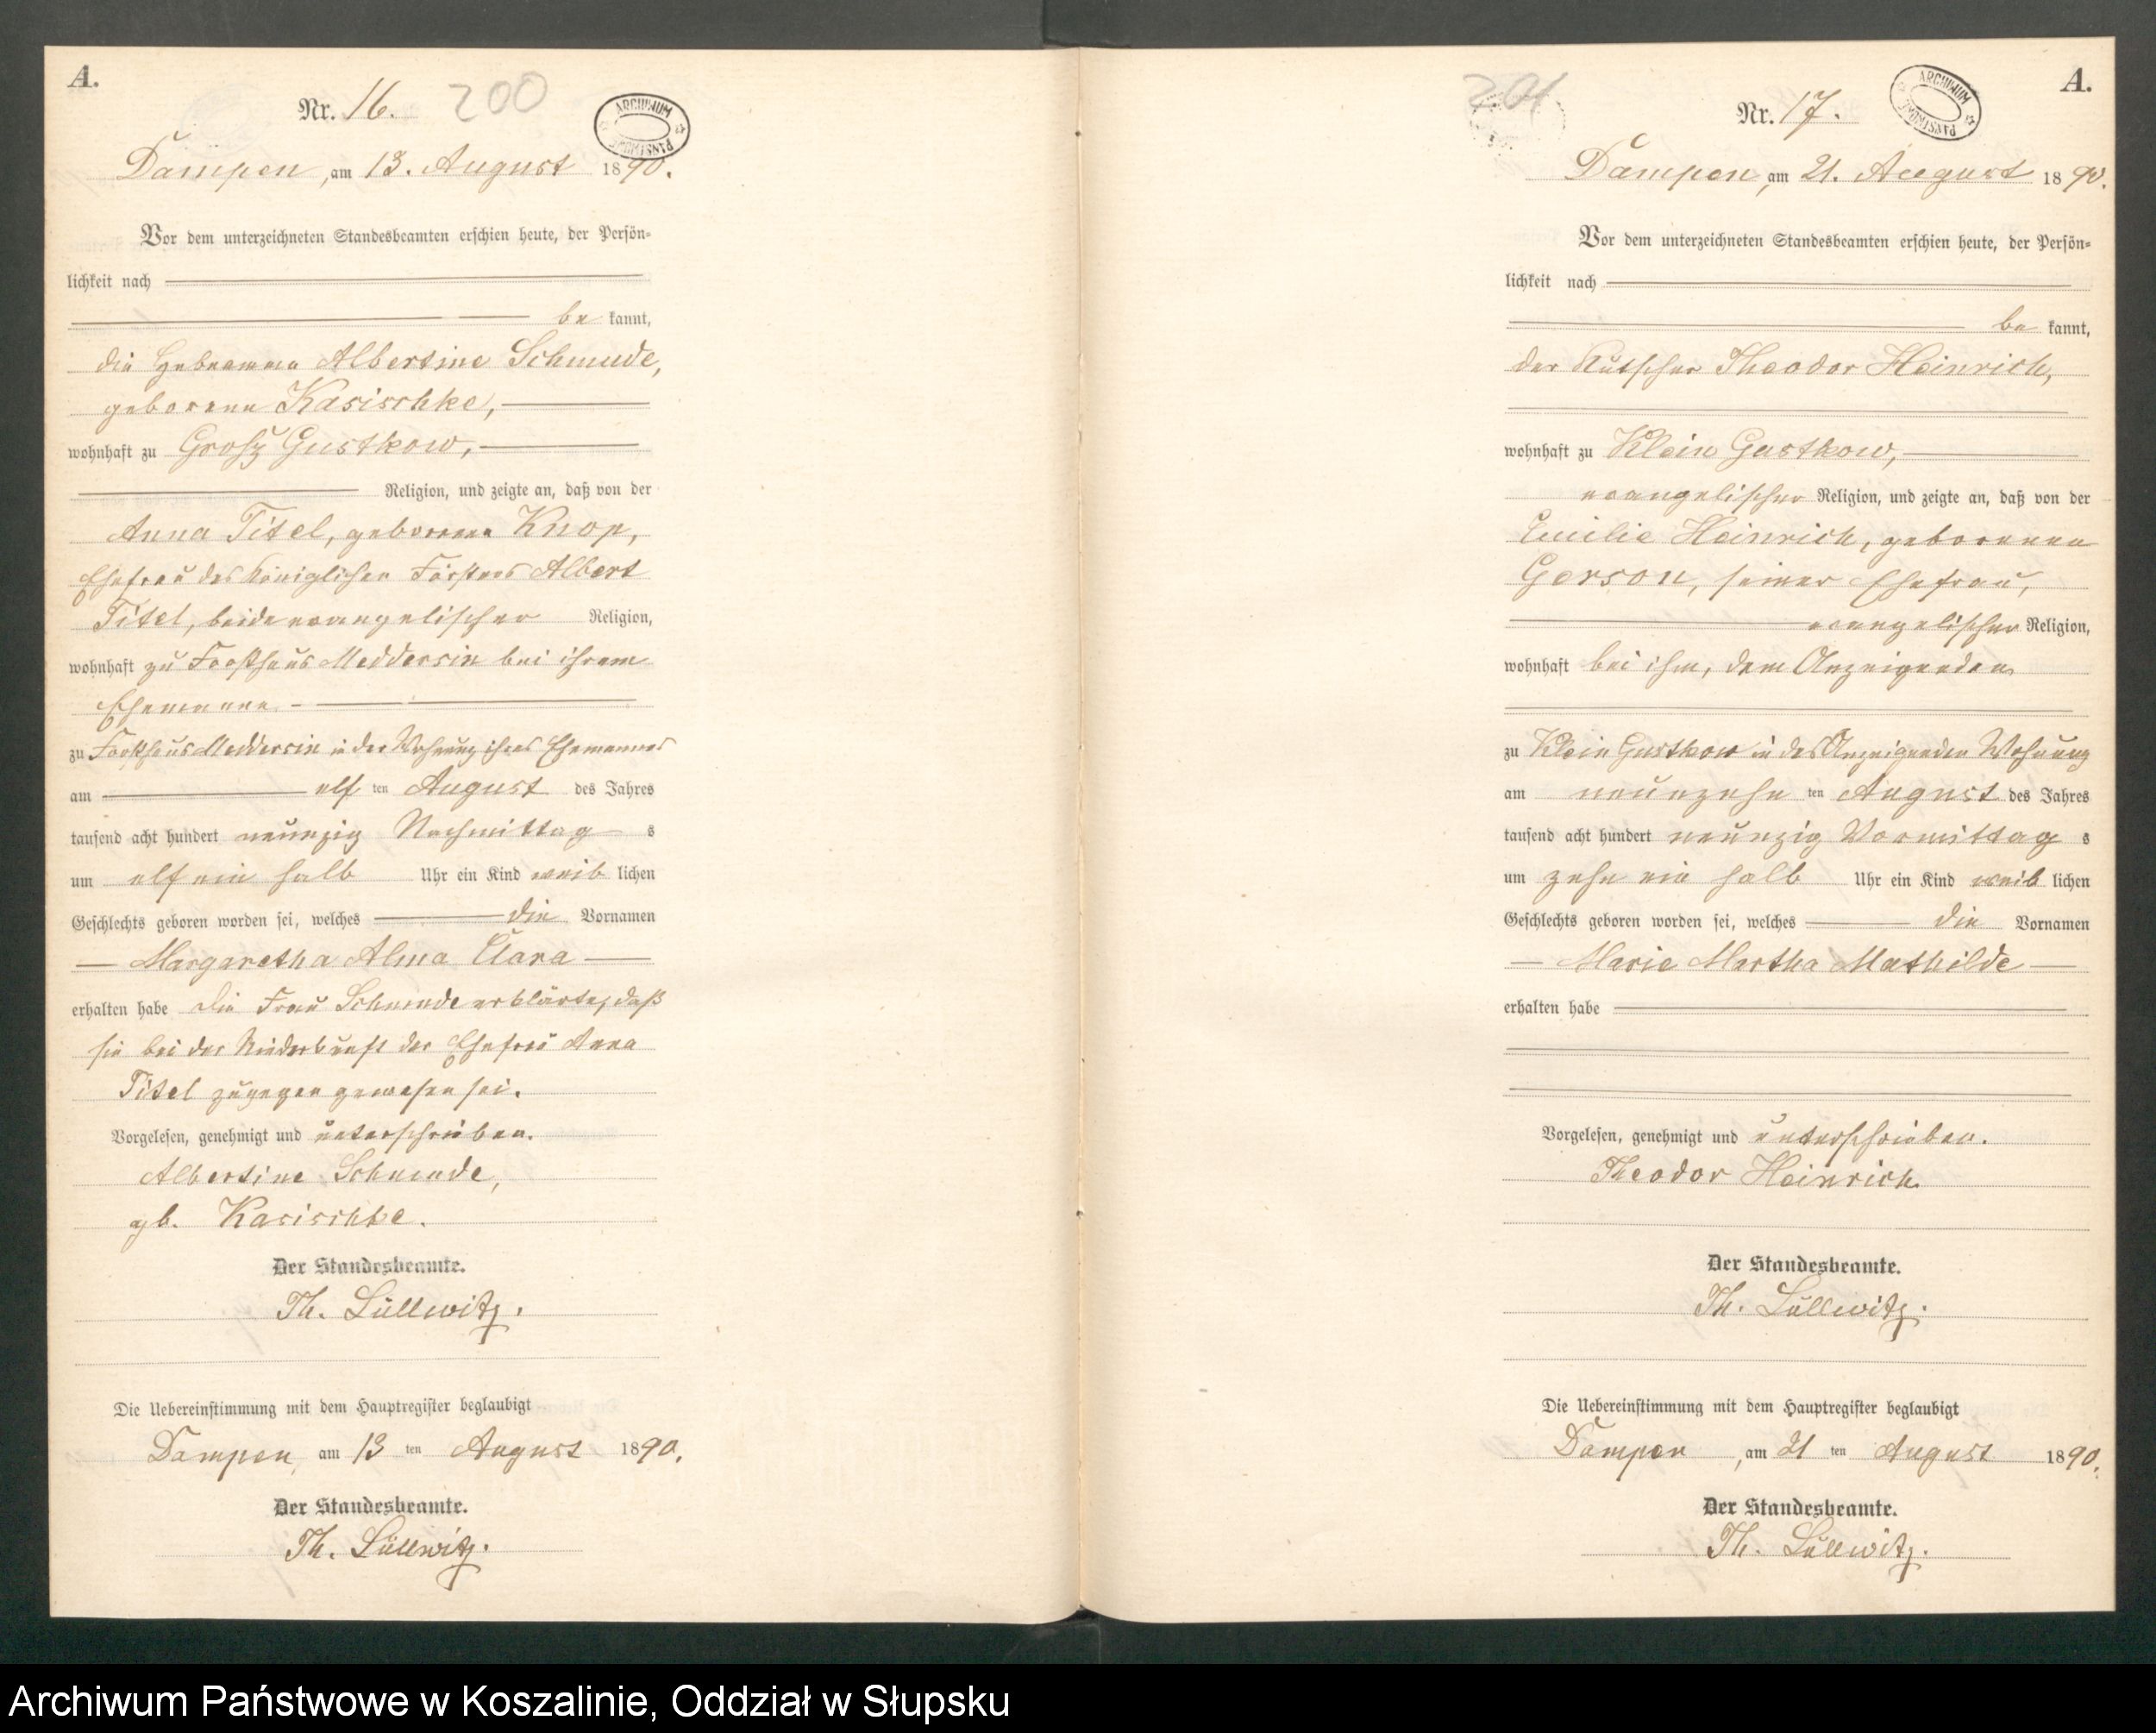 A.
Nr. 16.
200
ARCHIWUM PAŃSTWOWE
Dampen, am 13. August 1890.
Vor dem unterzeichneten Standesbeamten erschien heute, der Persön-
lichkeit nach
be kannt,
die Hebeamme Albertine Schmude,
geborene Kasischke,
wohnhaft zu Groß Gustkow,
Religion, und zeigte an, daß von der
Anna Titel, geborenen Knop,
Ehefrau des Königlichen Försters Albert
Titel, beide evangelischer Religion,
wohnhaft zu Forsthaus Meddersin bei ihrem
Ehemanne
zu Forsthaus Meddersin in der Wohnung ihres Ehemannes
am elf ten August des Jahres
tausend acht hundert neunzig Nachmittag s
um elf ein halb Uhr ein Kind weib lichen
Geschlechts geboren worden sei, welches die Vornamen
Margaretha Alma Clara
erhalten habe Die Frau Schmude erklärte, daß
sie bei der Niederkunft der Ehefrau Anna
Titel zugegen gewesen sei.
Vorgelesen, genehmigt und unterschrieben.
Albertine Schmude,
gb. Kasischke.
Der Standesbeamte.
Th. Lüllwitz.
Die Uebereinstimmung mit dem Hauptregister beglaubigt
Dampen, am 13 ten August 1890.
Der Standesbeamte.
Th. Lüllwitz.
A.
201
Nr. 17.
ARCHIWUM PAŃSTWOWE
Dampen, am 21. August 1890.
Vor dem unterzeichneten Standesbeamten erschien heute, der Persön-
lichkeit nach
be kannt,
der Kutscher Theodor Heinrich,
wohnhaft zu Klein Gustkow,
evangelischer Religion, und zeigte an, daß von der
Emilie Heinrich, geborenen
Gerson, seiner Ehefrau,
evangelischer Religion,
wohnhaft bei ihm, dem Anzeigenden
zu Klein Gustkow in des Anzeigenden Wohnung
am neunzehn ten August des Jahres
tausend acht hundert neunzig Vormittag s
um zehn ein halb Uhr ein Kind weib lichen
Geschlechts geboren worden sei, welches die Vornamen
Marie Martha Mathilde
erhalten habe
Vorgelesen, genehmigt und unterschrieben.
Theodor Heinrich.
Der Standesbeamte.
Th. Lüllwitz.
Die Uebereinstimmung mit dem Hauptregister beglaubigt
Dampen, am 21 ten August 1890.
Der Standesbeamte.
Th. Lüllwitz.
Archiwum Państwowe w Koszalinie, Oddział w Słupsku